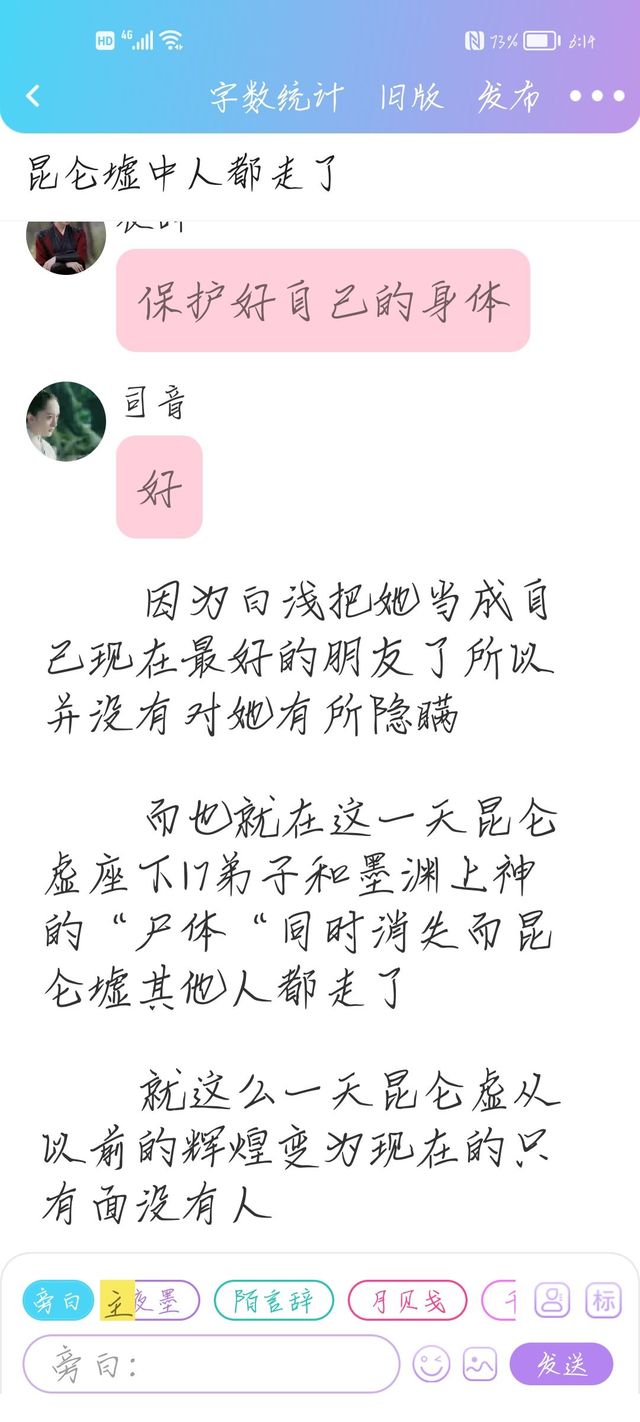 HD 4G 73% 6:14
字数统计 旧版 发布
昆仑墟中人都走了
保护好自己的身体
司音
好
因为白浅把她当成自
己现在最好的朋友了所以
并没有对她有所隐瞒
而也就在这一天昆仑
虚座下17弟子和墨渊上神
的“尸体“同时消失而昆
仑墟其他人都走了
就这么一天昆仑虚从
以前的辉煌变为现在的只
有面没有人
旁白 主 夜墨 陌言辞 月贝戋 标
旁白：
发送